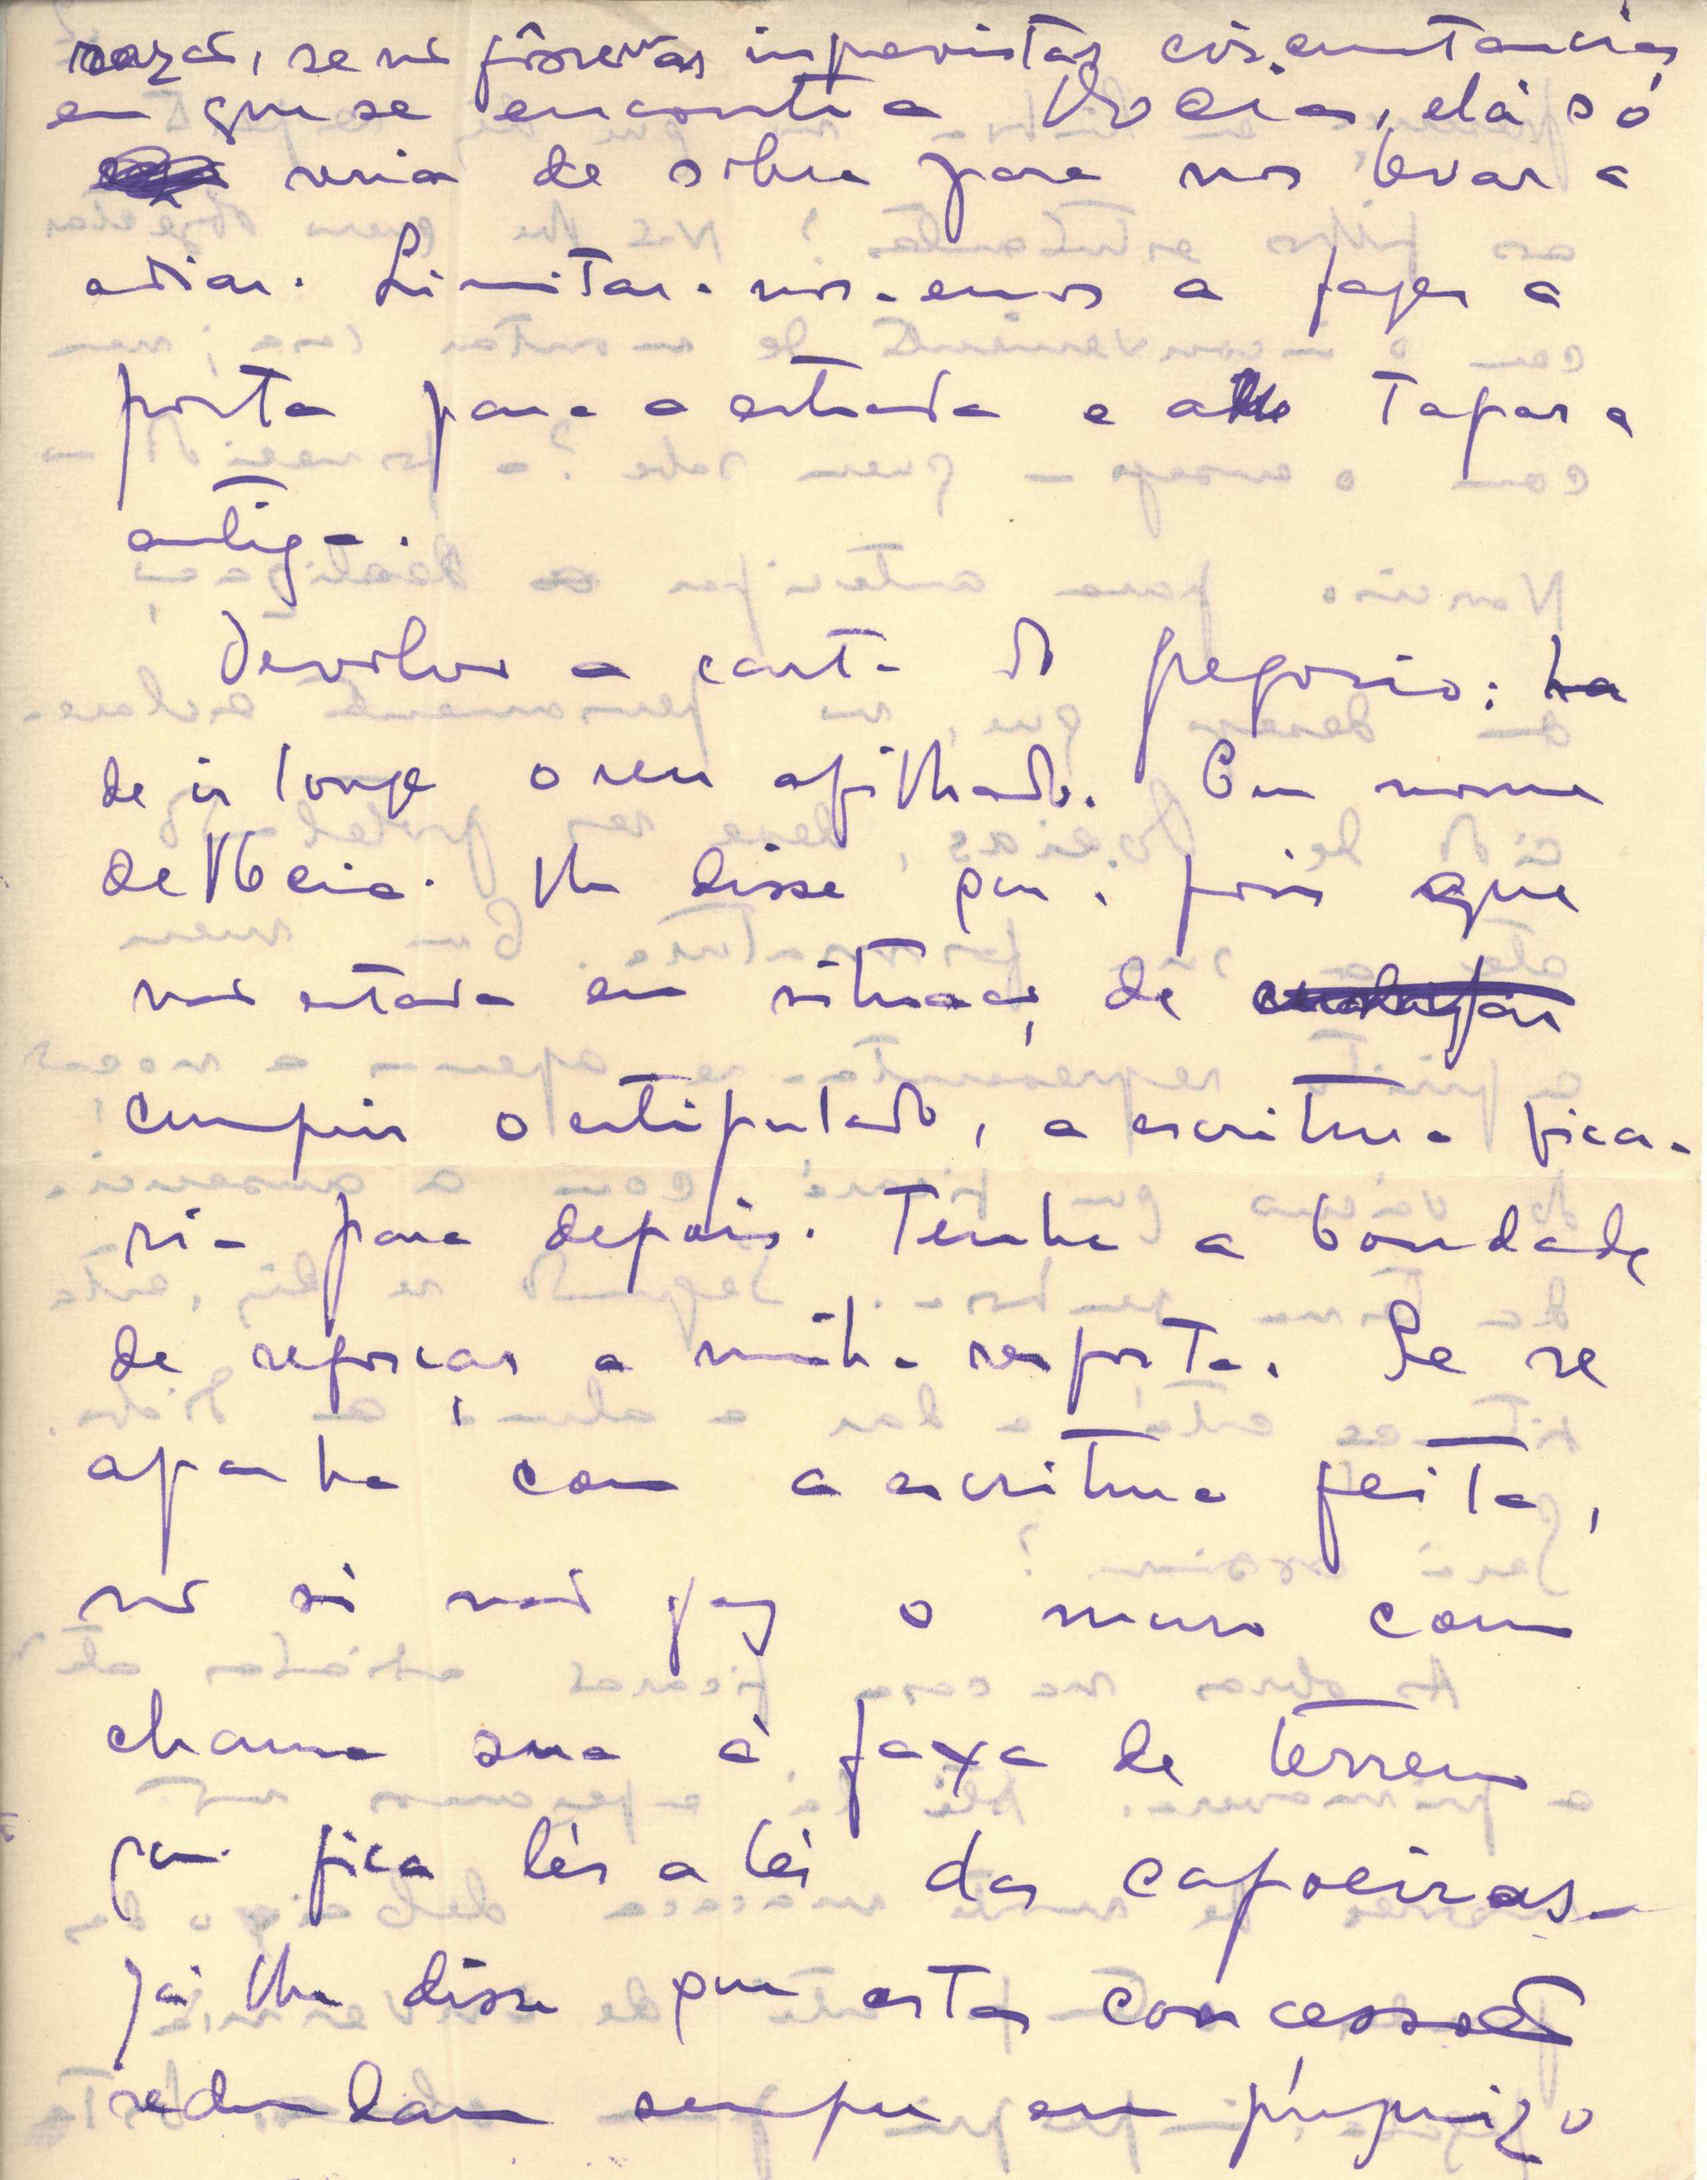 razão, se não fôssem as imprevistas circunstancias
em que se encontra VExcia, ela só
seria de sobra para nos levar a
adiar. Limitar-nos-emos a fazer a
porta para a estrada e a tapar a
antiga.
Devolvo a carta do Gregorio: ha
de ir longe o seu afilhado. Em nome
de VExcia. lhe disse que, pois que
não estava em situação de
cumprir o estipulado, a escritura fica-
ria para depois. Tenha a bondade
de reforçar a minha resposta. Se se
apanha com a escritura feita,
não só não faz o muro como
chama sua á faxa de terreno
que fica lés a lés das capoeiras.
Já lhe disse que estas concessões
redundam sempre em prejuizo